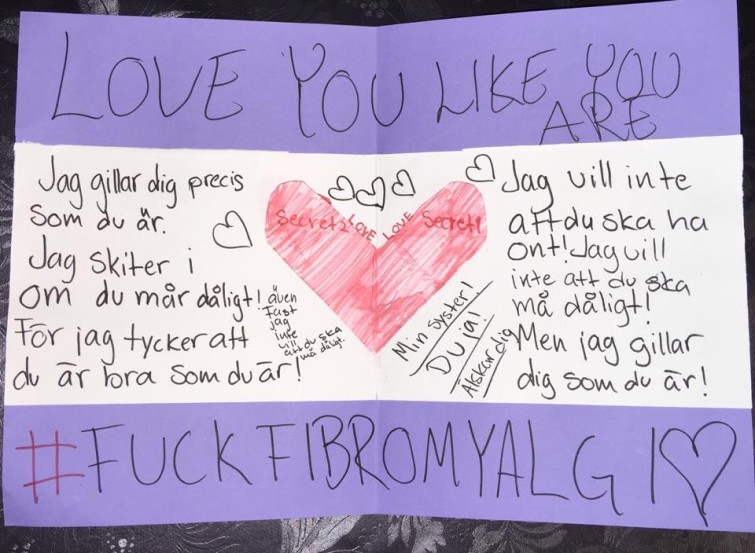 LOVE YOU LIKE YOU
ARE
Jag gillar dig precis
som du är.
Jag skiter i
om du mår dåligt!
även
fast
jag
inte
vill
att du ska
må dåligt.
För jag tycker att
du är bra som du är!
Secret2
LOVE
LOVE
Secret1
Min syster!
Du ja!
Älskar dig
Jag vill inte
att du ska ha
ont! Jag vill
inte att du ska
må dåligt!
Men jag gillar
dig som du är!
#FUCKFIBROMYALGI